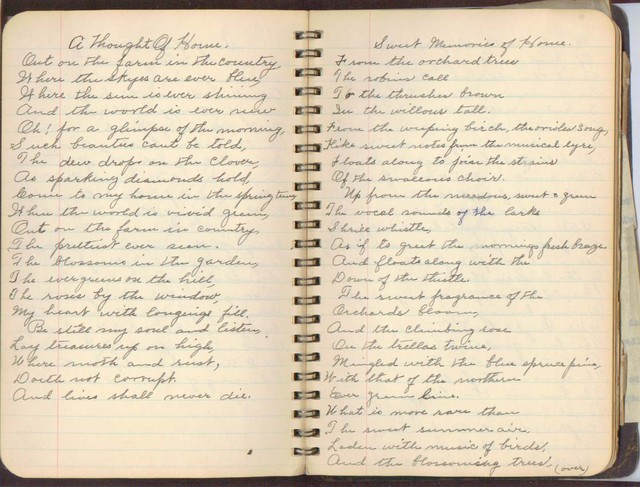 A Thought Of Home.
Out on the farm in the country,
Where the skyes are ever blue,
Where the sun is ever shining
And the world is ever new
Oh! for a glimpse of the morning,
Such beauties can't be told,
The dew drops on the clover,
As sparkling diamonds hold,
Come to my home in the spring time,
When the world is vivid green,
Out on the farm in country,
The prettist ever seen.
The blossoms in the garden,
The evergreens on the hill,
The roses by the window,
My heart with longings fill.
Be still my soul and listen,
Lay treasures up on high,
Where moth and rust,
Doeth not corrupt.
And lives shall never die.
Sweet Memories of Home.
From the orchard trees
The robins call
To the thrushes brown
In the willows tall.
From the weeping birch, the orioles song,
Like sweet notes from the musical lyre,
Floats along to join the strains
Of the swallows choir.
Up from the meadows, sweet & green
The vocal sounds of the larks
Shrill whistle,
As if to greet the mornings fresh breeze
And floats along with the
Down of the thistle.
The sweet fragrance of the
Orchards bloom,
And the climbing rose
On the trellas twine,
Mingled with the blue spruce pine,
With that of the northern
Ever green line.
What is more rare than
The sweet summer air.
Laden with music of birds,
And the blossoming trees. (over)